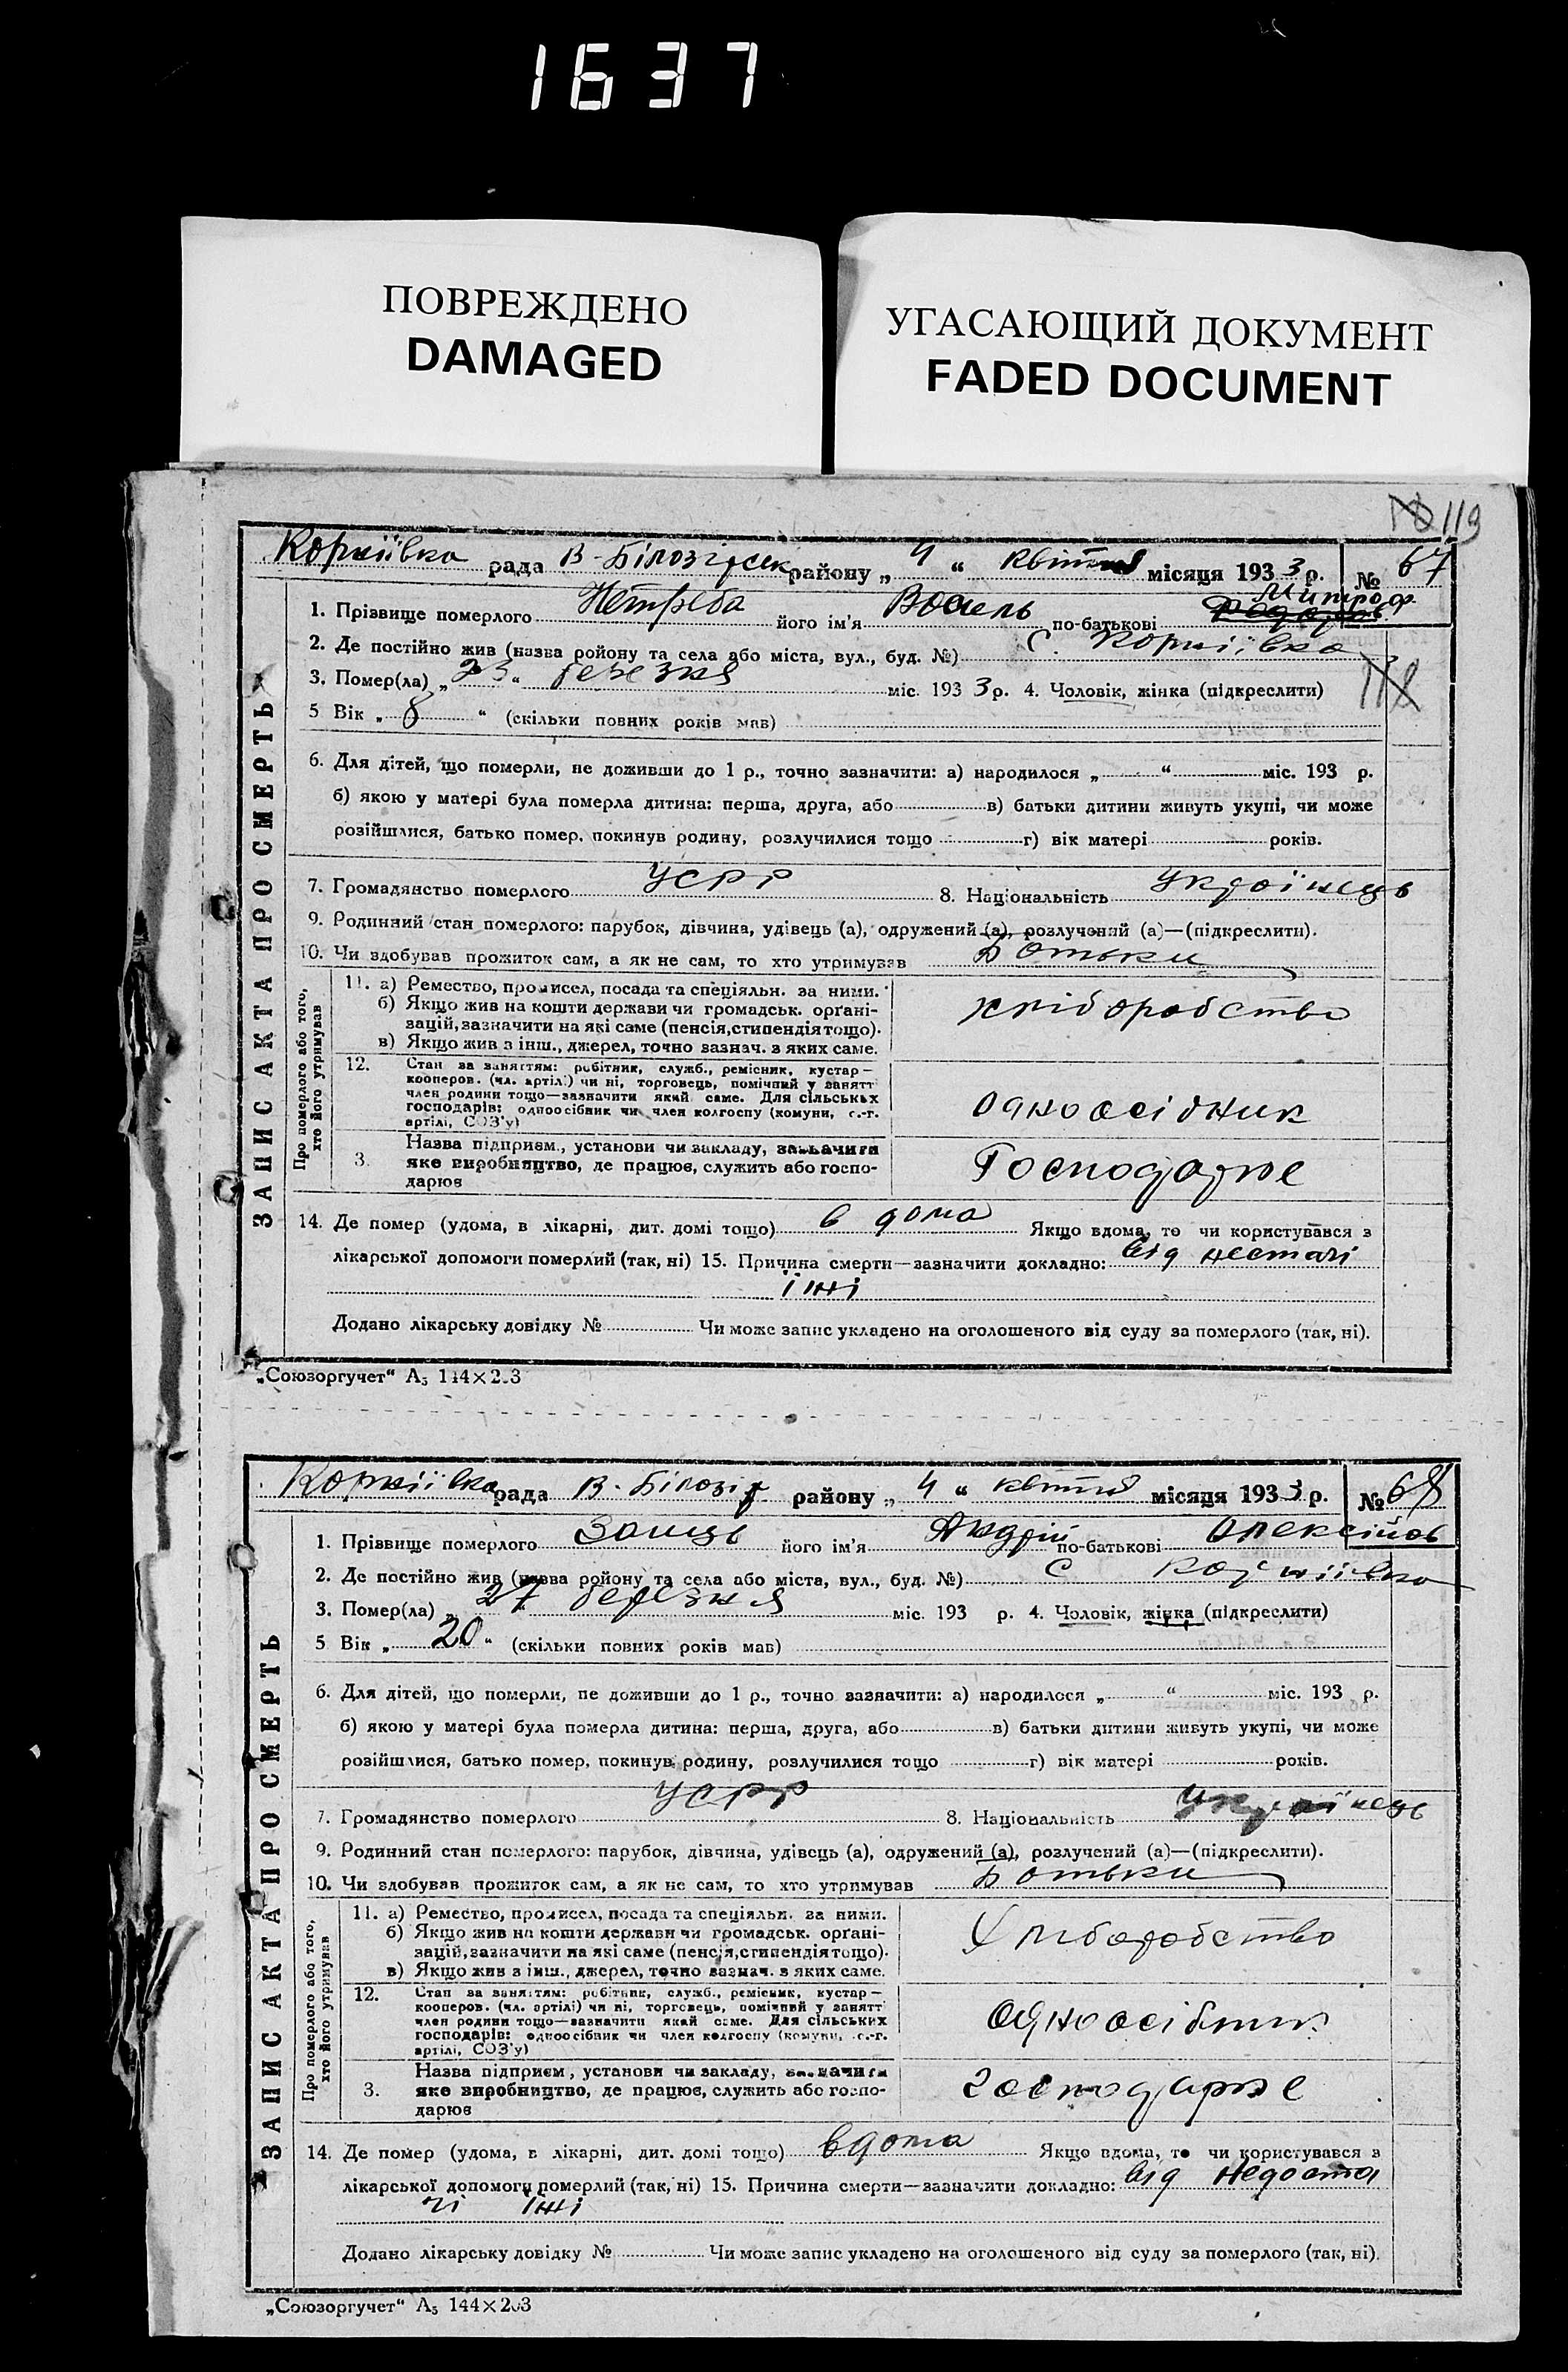 1637
ПОВРЕЖДЕНО
DAMAGED
УГАСАЮЩИЙ ДОКУМЕНТ
FADED DOCUMENT
119
Корніївка рада В-Білозірськ району „ 4 “ квітня місяця 1933 р. № 67
Митроф.
1. Прізвище померлого Нетреба його ім’я Василь по-батькові
2. Де постійно жив (назва ройону та села або міста, вул., буд. №) с. Корніївка
3. Помер(ла) „ 23 “ березня міс. 1933 р. 4. Чоловік, жінка (підкреслити)
118
5 Вік „ 8 “ (скільки повних років мав)
6. Для дітей, що померли, не доживши до 1 р., точно зазначити: а) народилося „ “ міс. 193 р.
б) якою у матері була померла дитина: перша, друга, або в) батьки дитини живуть укупі, чи може
розійшлися, батько помер, покинув родину, розлучилися тощо г) вік матері років.
7. Громадянство померлого УСРР 8. Національність Українець
9. Родинний стан померлого: парубок, дівчина, удівець (а), одружений (а), розлучений (а)—(підкреслити).
10. Чи здобував прожиток сам, а як не сам, то хто утримував Батьки
ЗАПИС АКТА ПРО СМЕРТЬ
Про померлого або того, хто його утримував
11. а) Ремество, промисел, посада та спеціяльн. за ними.
б) Якщо жив на кошти держави чи громадськ. орґані-
зацій, зазначити на які саме (пенсія, стипендія тощо).
в) Якщо жив з інш., джерел, точно зазнач. з яких саме.
хліборобство
12. Стан за заняттям: робітник, служб., ремісник, кустар—
кооперов. (чл. артілі) чи ні, торговець, помічний у занятт
член родини тощо—зазначити який саме. Для сільських
господарів: одноосібник чи член колгоспу (комуни, с.-г.
артілі, СОЗ’у)
одноосібник
3. Назва підприєм., установи чи закладу, зазначити
яке виробництво, де працює, служить або госпо-
дарює
Господарює
14. Де помер (удома, в лікарні, дит. домі тощо) в дома Якщо вдома, то чи користувався з
лікарської допомоги померлий (так, ні) 15. Причина смерти—зазначити докладно: від нестачі
їжі
Додано лікарську довідку № Чи може запис укладено на оголошеного від суду за померлого (так, ні).
„Союзоргучет“ А5 144×203
Корніївка рада В-Білозір. району „ 4 “ квітня місяця 1933 р. № 68
1. Прізвище померлого Заиць його ім’я Андрій по-батькові Олексійов
2. Де постійно жив (назва ройону та села або міста, вул., буд. №) с Корніівка
3. Помер(ла) „ 27 березня міс. 193 р. 4. Чоловік, жінка (підкреслити)
5 Вік „ 20 “ (скільки повних років мав)
6. Для дітей, що померли, не доживши до 1 р., точно зазначити: а) народилося „ “ міс. 193 р.
б) якою у матері була померла дитина: перша, друга, або в) батьки дитини живуть укупі, чи може
розійшлися, батько помер, покинув родину, розлучилися тощо г) вік матері років.
7. Громадянство померлого УСРР 8. Національність Українець
9. Родинний стан померлого: парубок, дівчина, удівець (а), одружений (а), розлучений (а)—(підкреслити).
10. Чи здобував прожиток сам, а як не сам, то хто утримував Батьки
ЗАПИС АКТА ПРО СМЕРТЬ
Про померлого або того, хто його утримував
11. а) Ремество, промисел, посада та спеціяльн. за ними.
б) Якщо жив на кошти держави чи громадськ. орґані-
зацій, зазначити на які саме (пенсія, стипендія тощо).
в) Якщо жив з інш., джерел, точно зазнач. з яких саме.
Хліборобство
12. Стан за заняттям: робітник, служб., ремісник, кустар—
кооперов. (чл. артілі) чи ні, торговець, помічний у занятт
член родини тощо—зазначити який саме. Для сільських
господарів: одноосібник чи член колгоспу (комуни, с.-г.
артілі, СОЗ’у)
одноосібник
3. Назва підприєм, установи чи закладу, зазначити
яке виробництво, де працює, служить або госпо-
дарює
господарює
14. Де помер (удома, в лікарні, дит. домі тощо) вдома Якщо вдома, то чи користувався з
лікарської допомоги померлий (так, ні) 15. Причина смерти—зазначити докладно: від недоста
чі їжі
Додано лікарську довідку № Чи може запис укладено на оголошеного від суду за померлого (так, ні).
„Союзоргучет“ А5 144×203